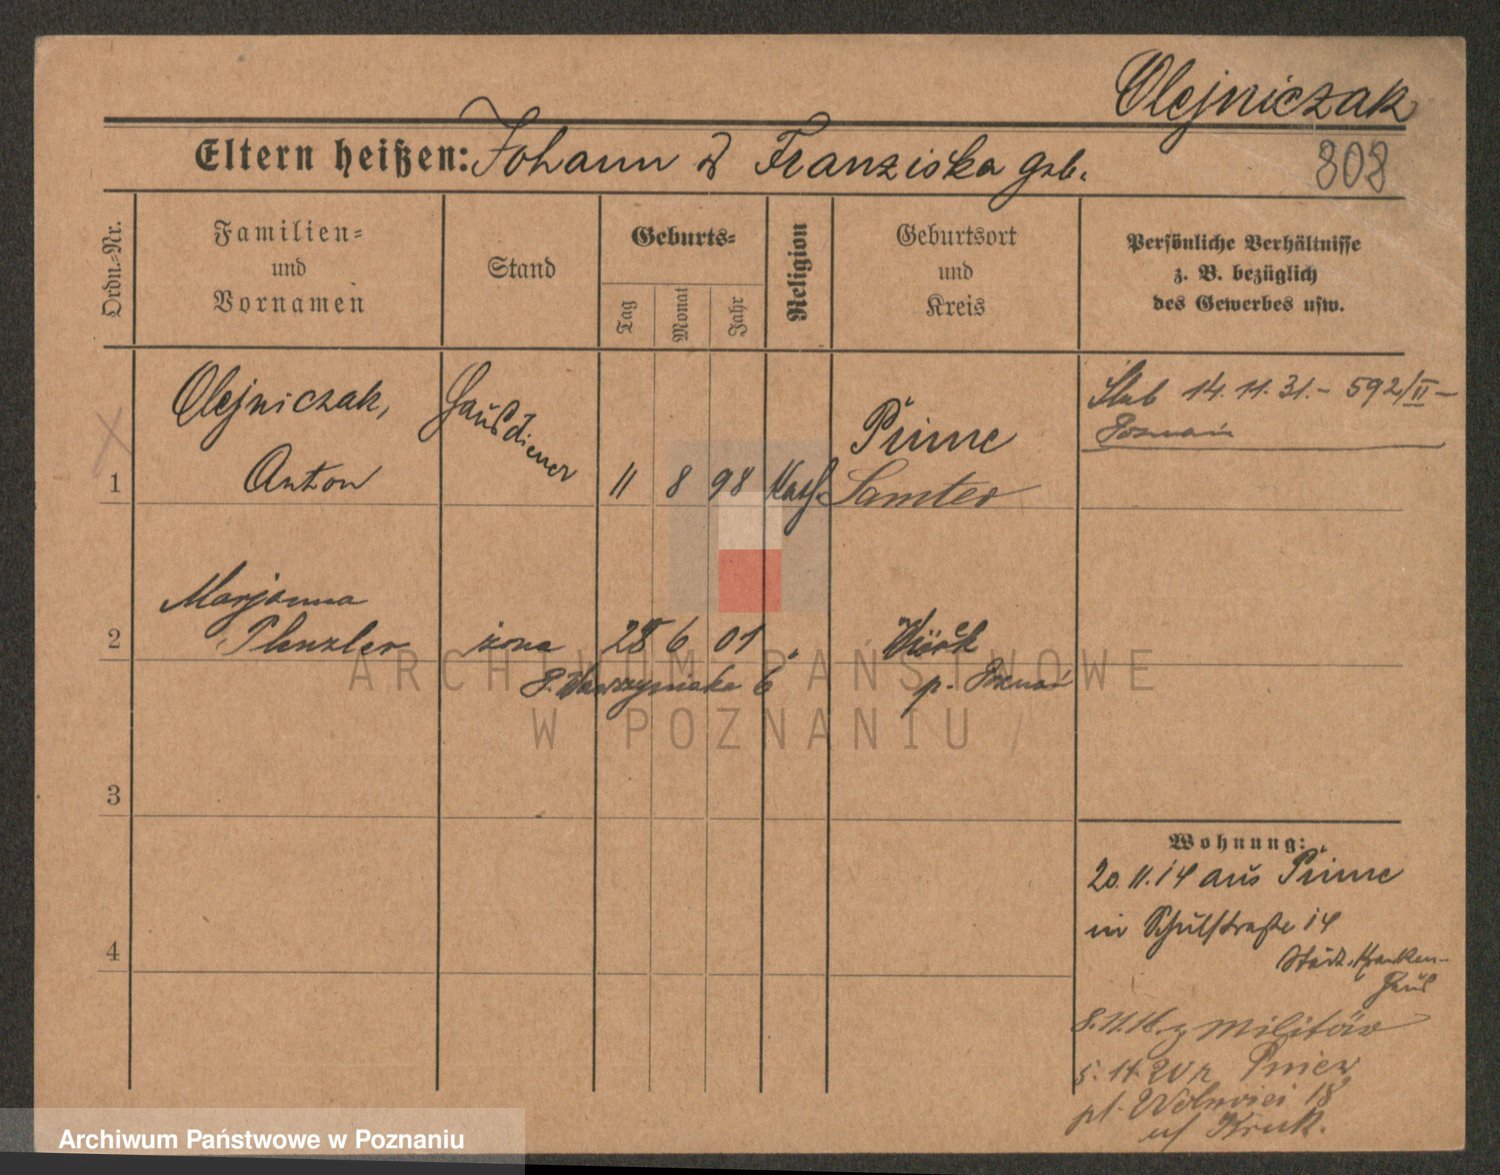 Olejniczak
Eltern heißen: Johann & Franziska geb.
808
Ordn.-Nr.
Familien-
und
Vornamen
Stand
Geburts-
Tag
Monat
Jahr
Religion
Geburtsort
und
Kreis
Persönliche Verhältnisse
z. B. bezüglich
des Gewerbes usw.
Olejniczak,
Hausdiener
Pinne
Ślub 14.11.31.- 592/II -
Poznań
1 Anton 11 8 98 kath. Samter
Marjanna
2 Plenzler żona 28 6 01
p. Poznań
Wawrzyniaka 6
ARCHIWUM PAŃSTWOWE
W POZNANIU
3
4
Wohnung:
20.11.14 aus Pinne
in Schulstraße 14
Städt. Kranken-
haus
z Militär
pl. Wolności 18
Archiwum Państwowe w Poznaniu